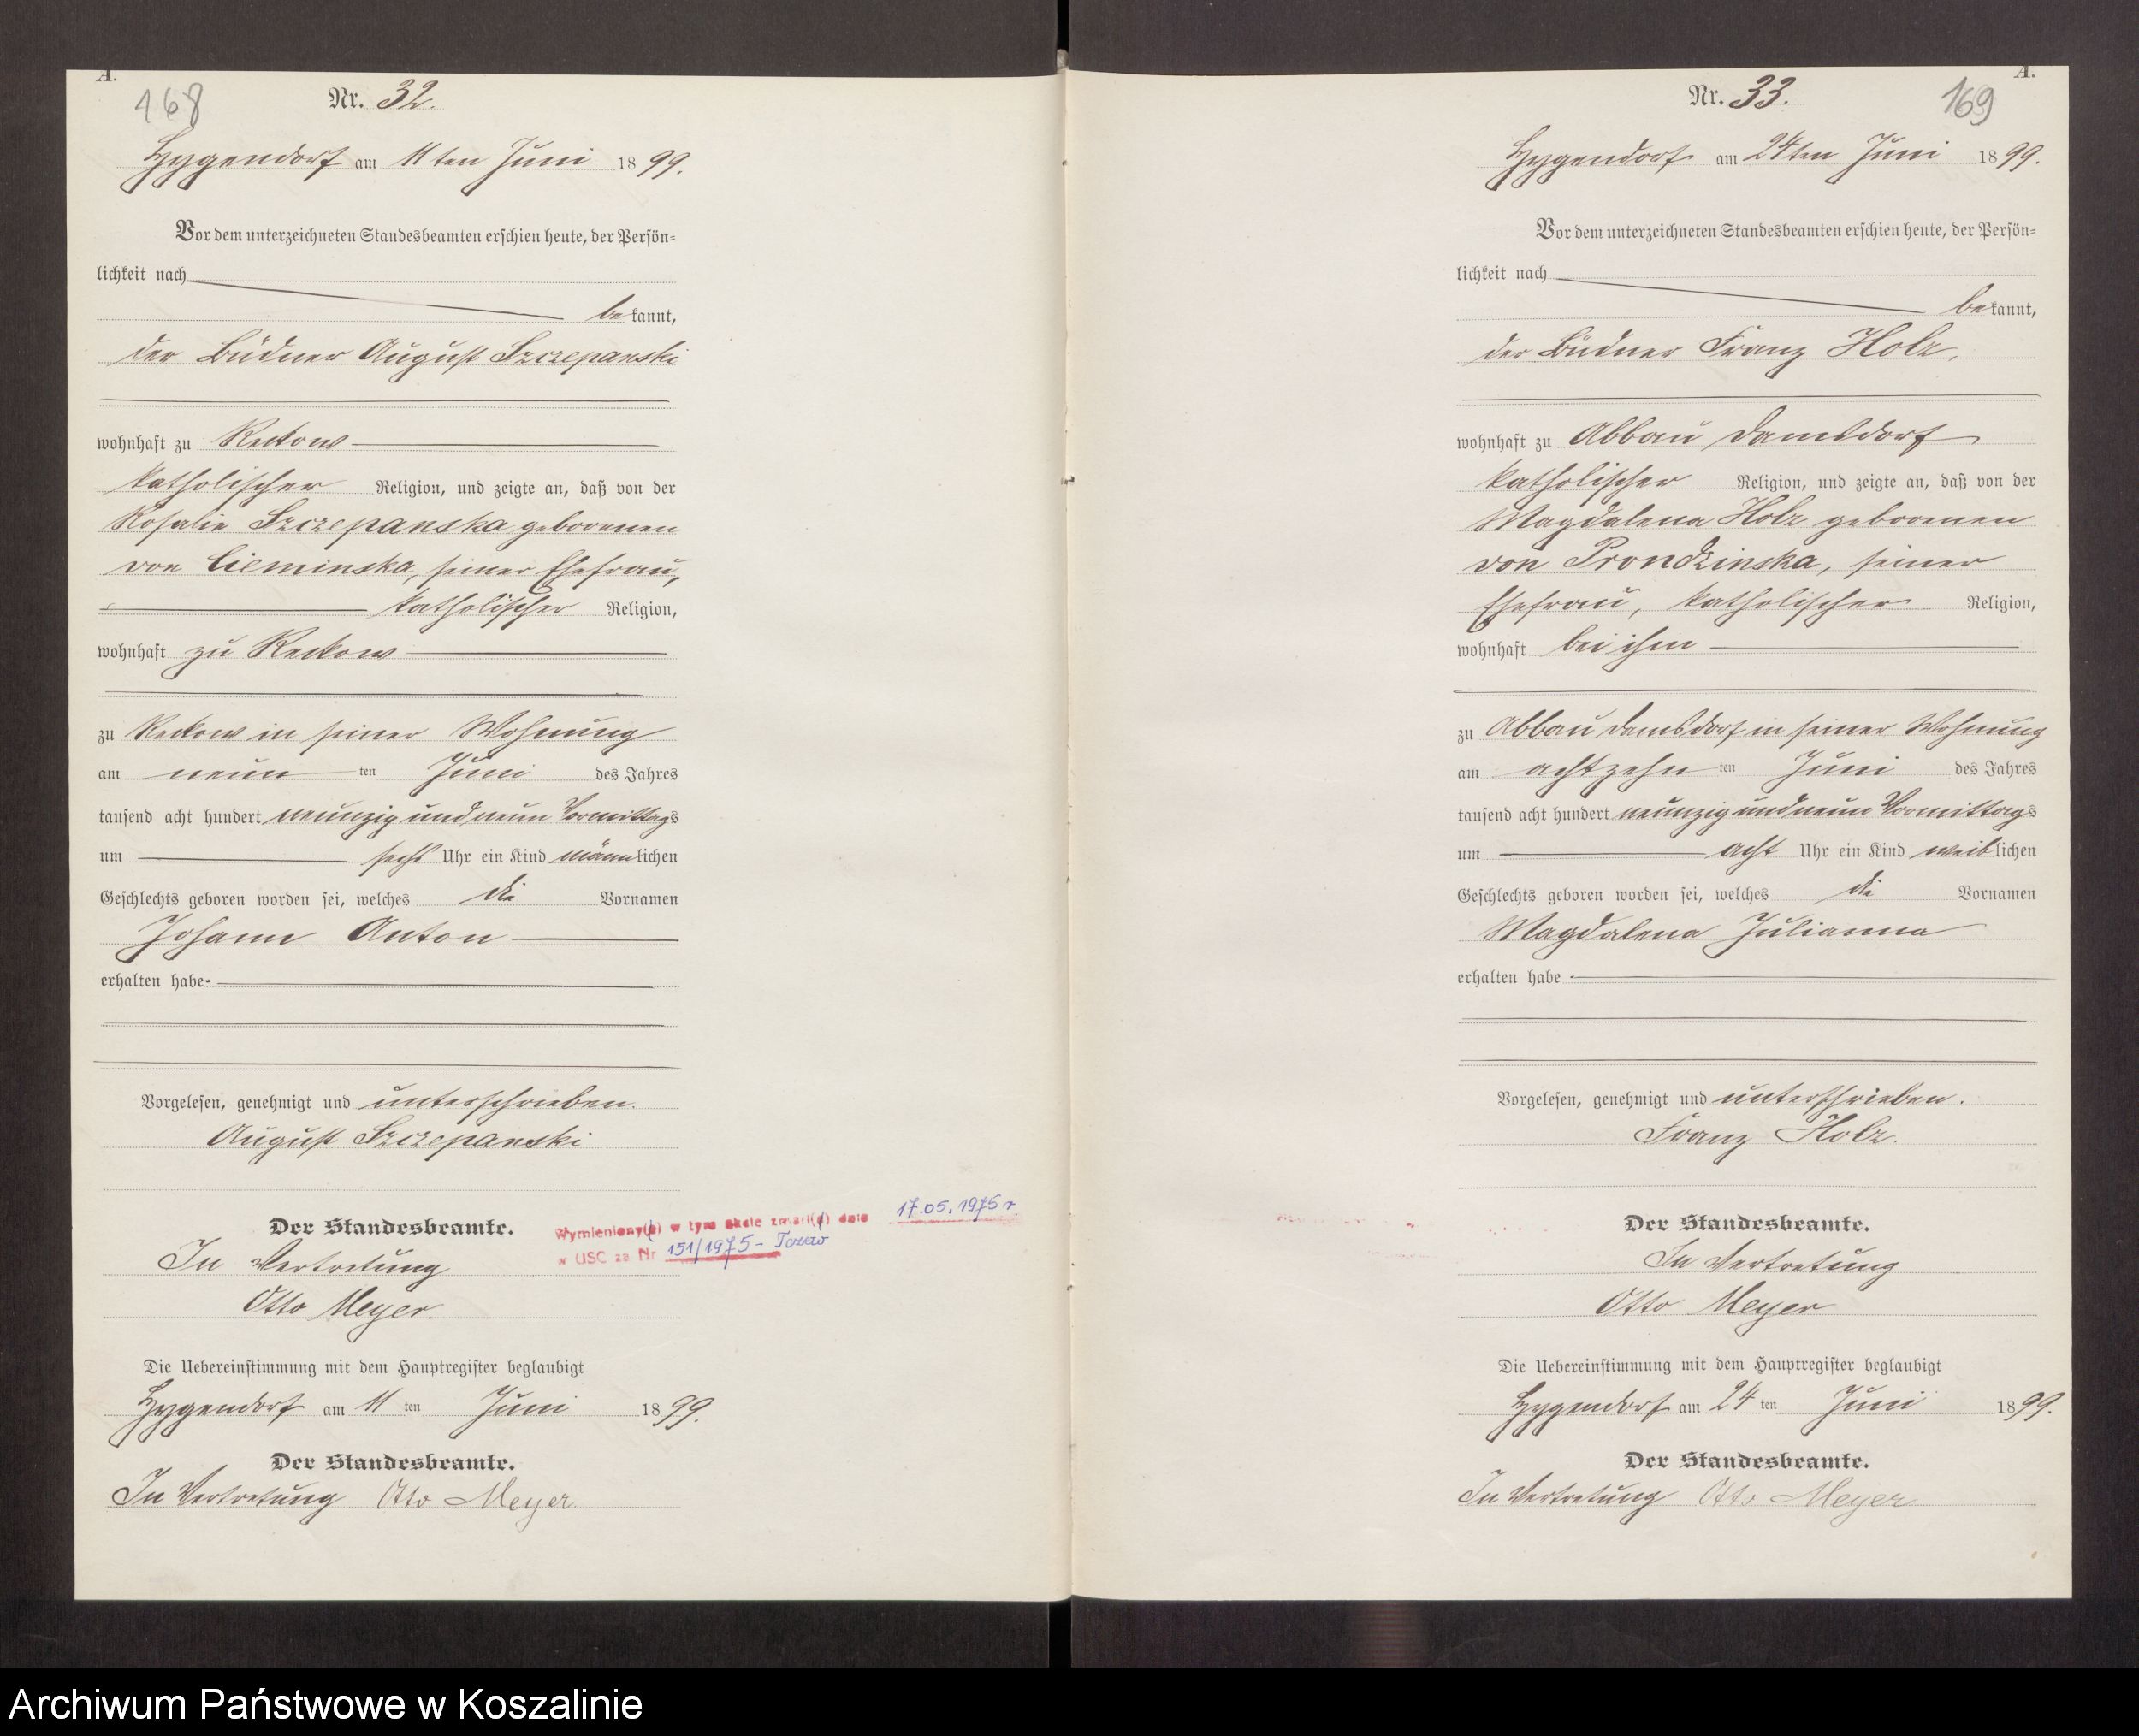 A.
168
Nr. 32.
Hygendorf am 11ten Juni 1899.
Vor dem unterzeichneten Standesbeamten erschien heute, der Persön-
lichkeit nach
bekannt,
der Büdner August Szczepanski
wohnhaft zu Reckow
katholischer Religion, und zeigte an, daß von der
Rosalie Szczepanska geborenen
von Cieminska, seiner Ehefrau,
katholischer Religion,
wohnhaft zu Reckow
zu Reckow in seiner Wohnung
am neun ten Juni des Jahres
tausend acht hundert neunzig und neun Vormittags
um sechs Uhr ein Kind männlichen
Geschlechts geboren worden sei, welches die Vornamen
Johann Anton
erhalten habe
Vorgelesen, genehmigt und unterschrieben.
August Szczepanski
Der Standesbeamte.
In Vertretung
Otto Meyer.
Wymieniony(a) w tym akcie zmarł(a) dnia 17.05.1975 r.
w USC za Nr 151/1975 - Tczew
Die Uebereinstimmung mit dem Hauptregister beglaubigt
Hygendorf am 11 ten Juni 1899.
Der Standesbeamte.
In Vertretung Otto Meyer
A.
169
Nr. 33.
Hygendorf am 24ten Juni 1899.
Vor dem unterzeichneten Standesbeamten erschien heute, der Persön-
lichkeit nach
bekannt,
der Büdner Franz Holz,
wohnhaft zu Abbau Damsdorf
katholischer Religion, und zeigte an, daß von der
Magdalena Holz geborenen
von Prondzinska, seiner
Ehefrau, katholischer Religion,
wohnhaft bei ihm
zu Abbau Damsdorf in seiner Wohnung
am achtzehn ten Juni des Jahres
tausend acht hundert neunzig und neun Vormittags
um acht Uhr ein Kind weiblichen
Geschlechts geboren worden sei, welches die Vornamen
Magdalena Julianna
erhalten habe
Vorgelesen, genehmigt und unterschrieben.
Franz Holz.
Der Standesbeamte.
In Vertretung
Otto Meyer
Die Uebereinstimmung mit dem Hauptregister beglaubigt
Hygendorf am 24 ten Juni 1899.
Der Standesbeamte.
In Vertretung Otto Meyer
Archiwum Państwowe w Koszalinie